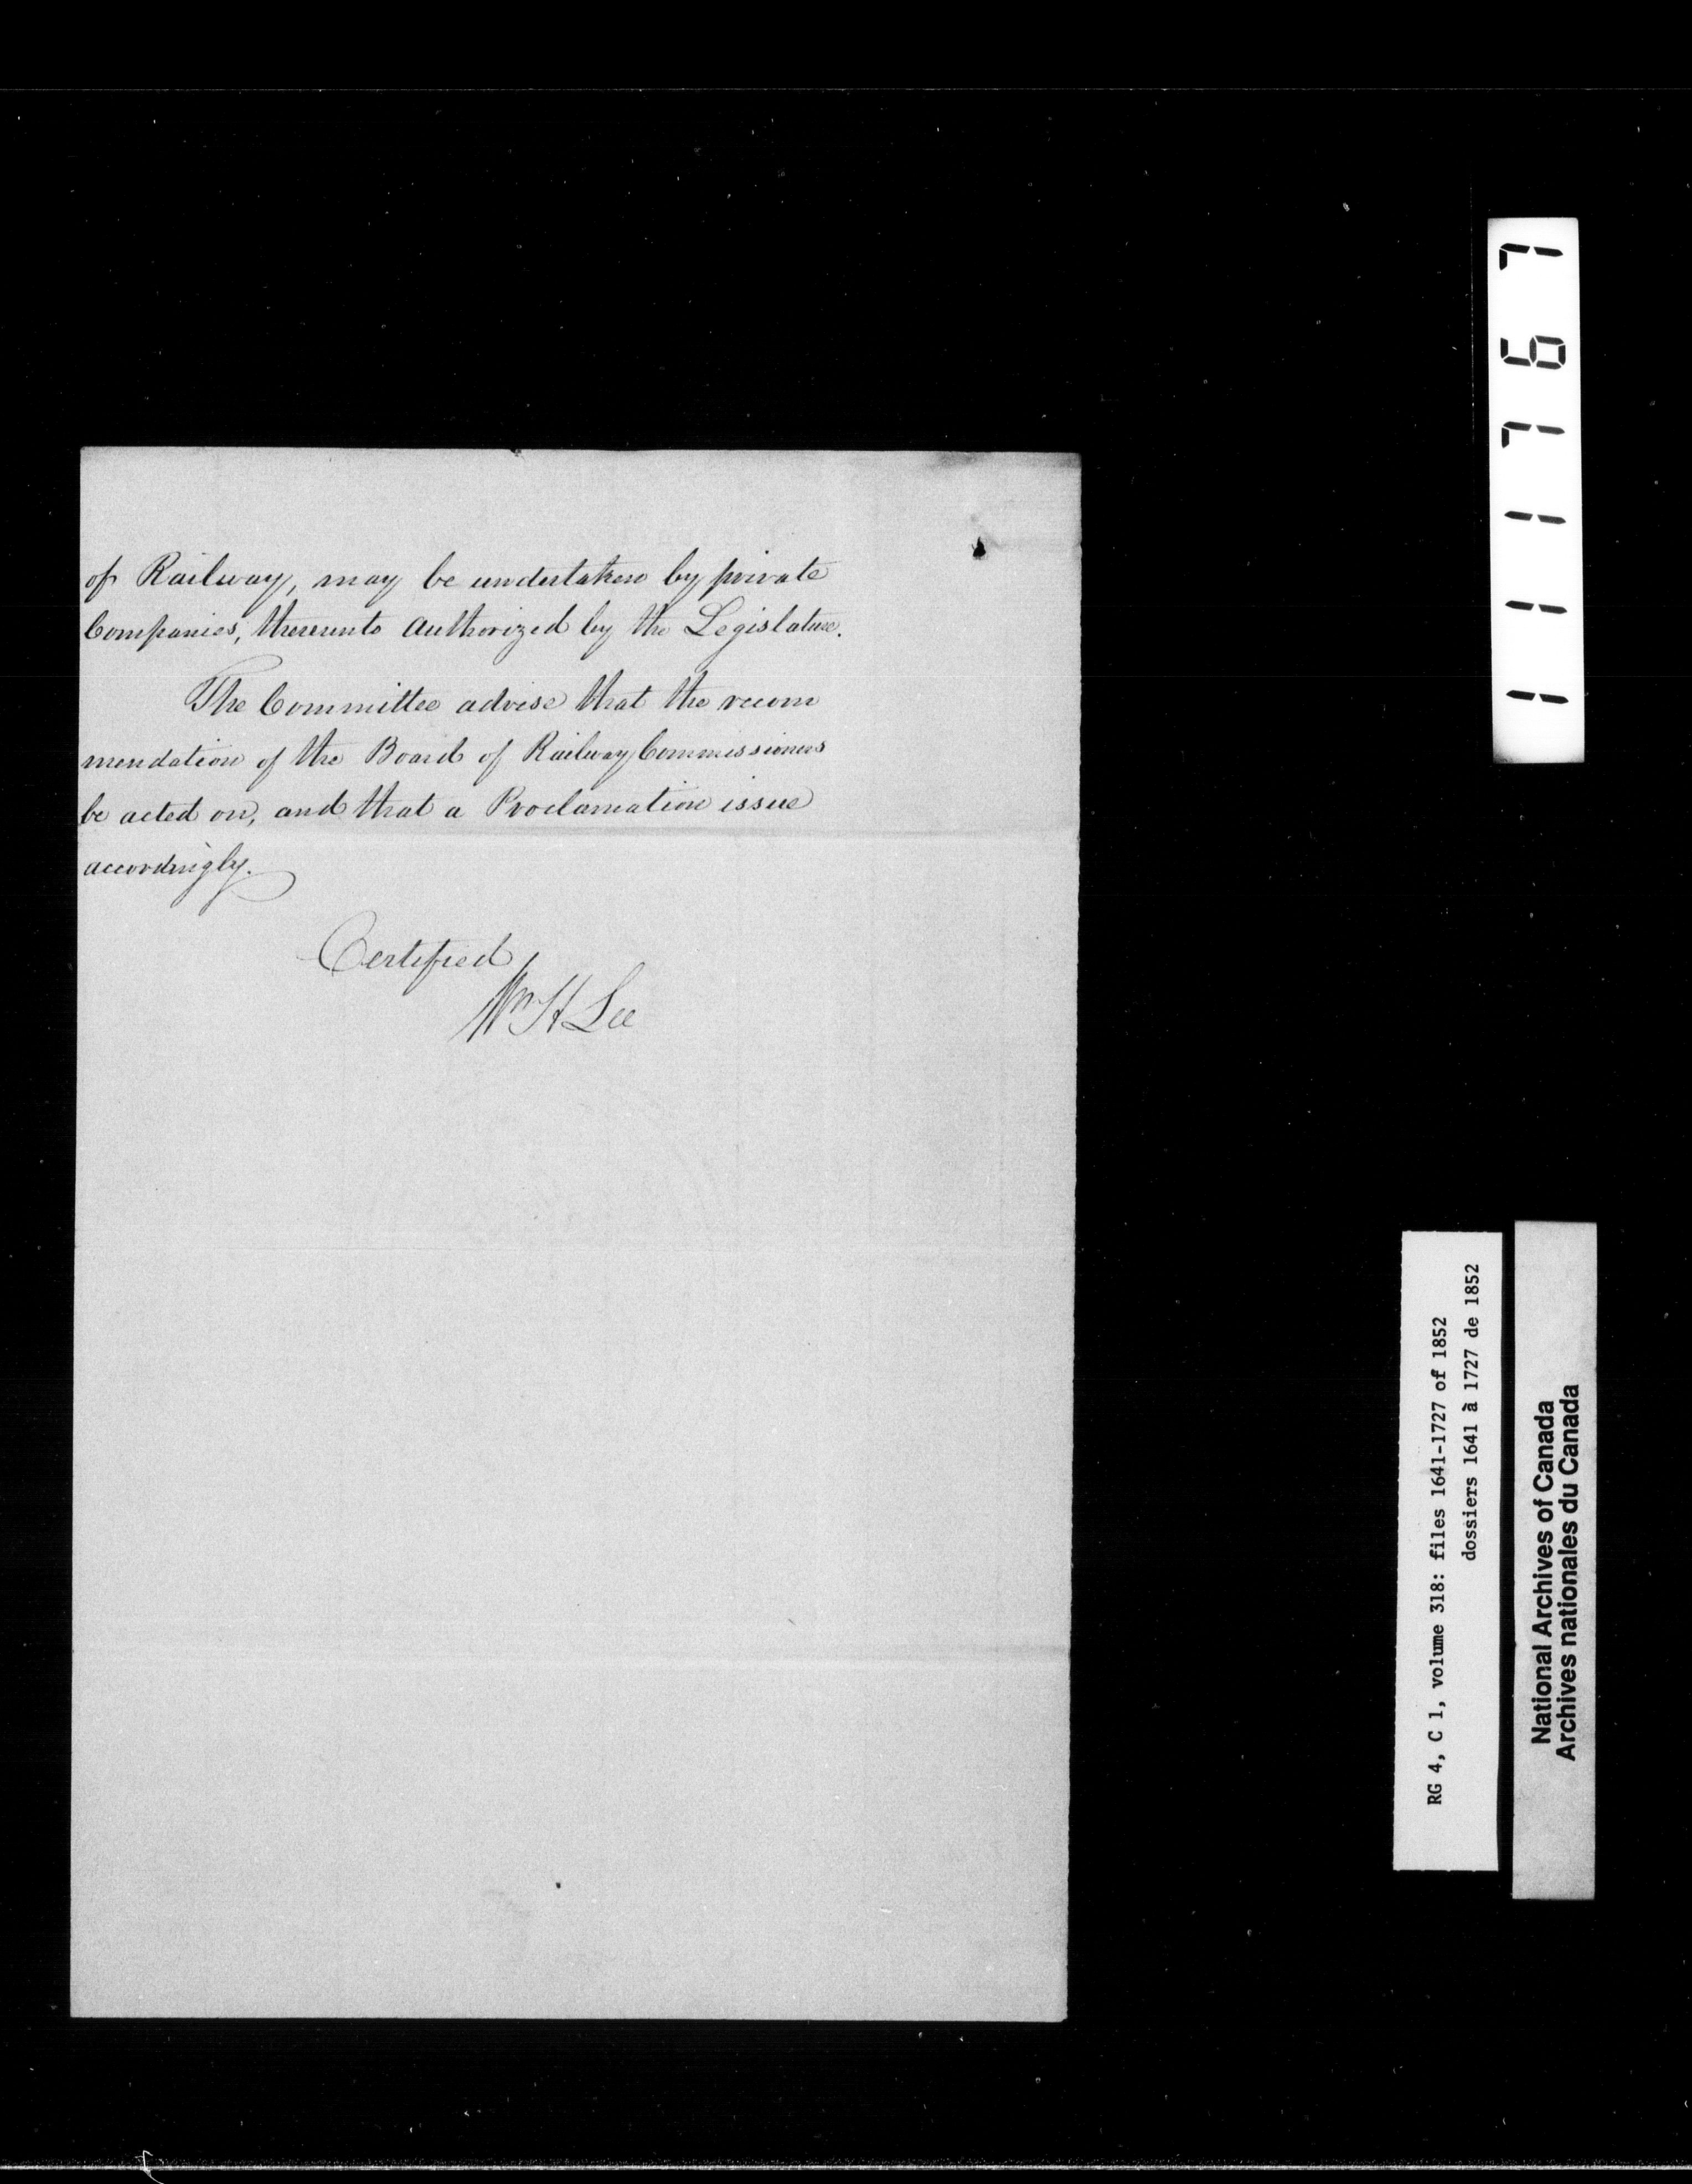 of Railway, may be undertaken by private
Companies, thereunto authorized by the Legislature.
The Committee advise that the recom
mendation of the Board of Railway Commissioners
be acted on, and that a Proclamation issue
accordingly.
Certified
Wm H Lee
111767
RG 4, C 1, volume 318: files 1641-1727 of 1852
dossiers 1641 à 1727 de 1852
National Archives of Canada
Archives nationales du Canada